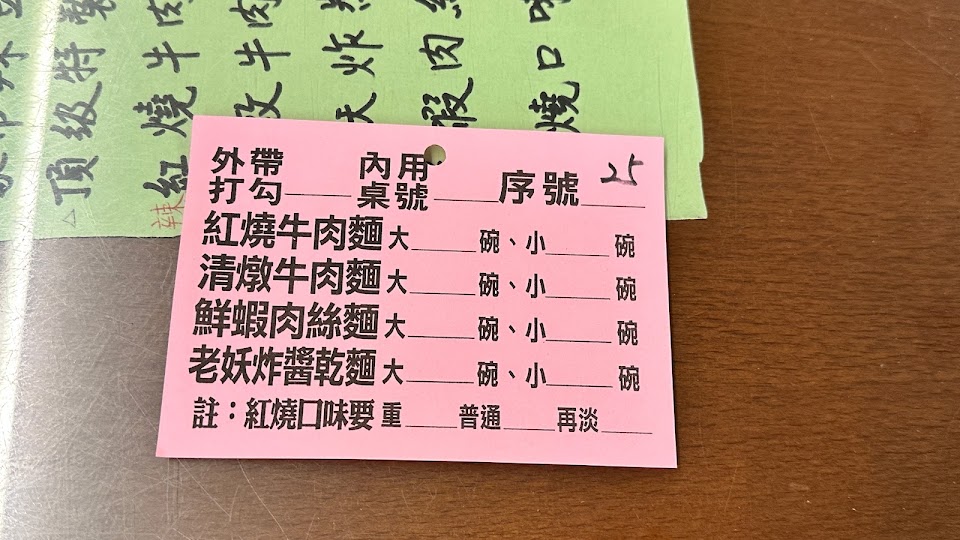 頂級特製
紅燒牛肉
辣
牛肉
炸
蝦肉絲
燒口味
外帶 內用 序號 25
打勾____ 桌號____
紅燒牛肉麵 大____碗、小____碗
清燉牛肉麵 大____碗、小____碗
鮮蝦肉絲麵 大____碗、小____碗
老妖炸醬乾麵 大____碗、小____碗
註：紅燒口味要 重____普通____再淡____